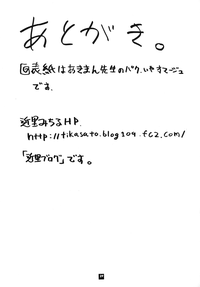 あとがき。
◎表紙はあきまん先生のパク、いやオマージュ
です。
近里みちるHP.
http://tikasato.blog109.fc2.com/
「近里ブログ」です。